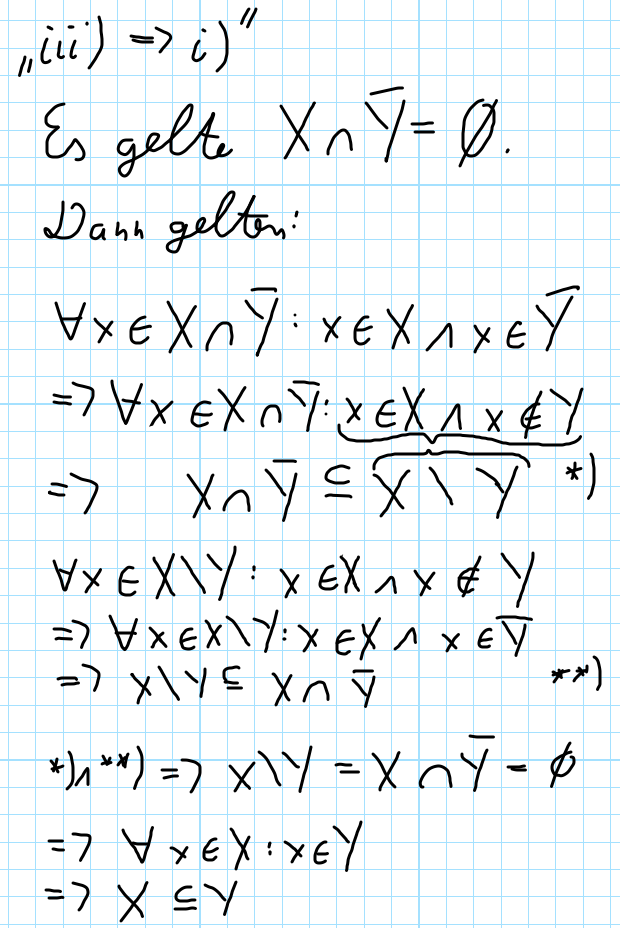 „iii) => i)“
Es gelte X ∩ Y̅ = ∅.
Dann gelten:
∀ x ∈ X ∩ Y̅ : x ∈ X ∧ x ∈ Y̅
=> ∀ x ∈ X ∩ Y̅ : x ∈ X ∧ x ∉ Y
=> X ∩ Y̅ ⊆ X \ Y *)
∀ x ∈ X \ Y : x ∈ X ∧ x ∉ Y
=> ∀ x ∈ X \ Y : x ∈ X ∧ x ∈ Y̅
=> X \ Y ⊆ X ∩ Y̅ **)
*) ∧ **) => X \ Y = X ∩ Y̅ = ∅
=> ∀ x ∈ X : x ∈ Y
=> X ⊆ Y